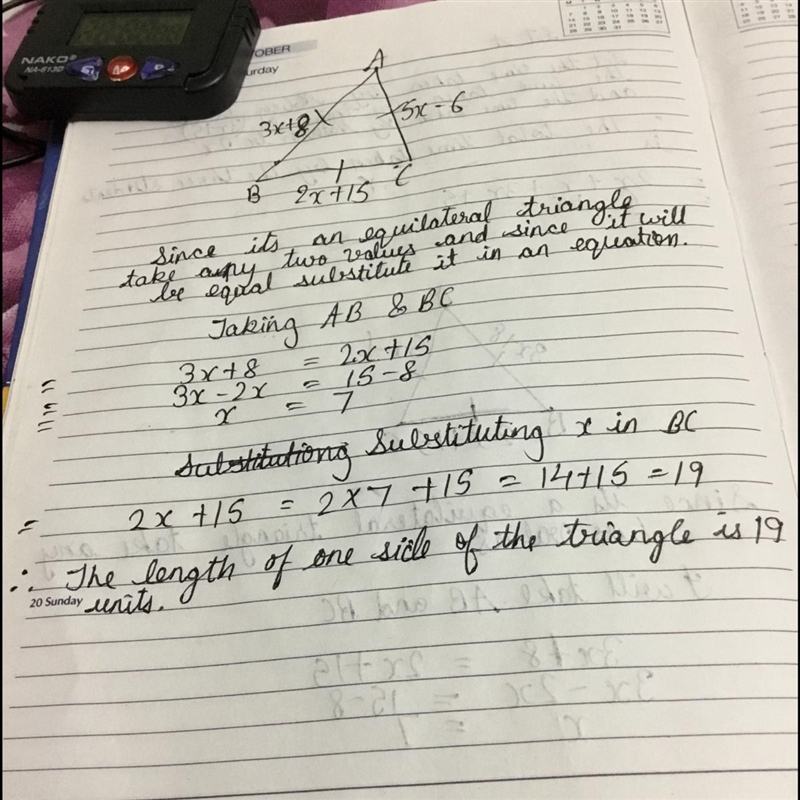 NAKO
NA-613D
OCTOBER
Saturday
A
3x+8
5x-6
B
2x+15
C
Since its an equilateral triangle
take any two values and since it will
be equal substitute it in an equation.
Taking AB & BC
3x+8 = 2x+15
= 3x-2x = 15-8
= x = 7
Substituting x in BC
= 2x+15 = 2x7+15 = 14+15 = 19
∴ The length of one side of the triangle is 19
units.
20 Sunday